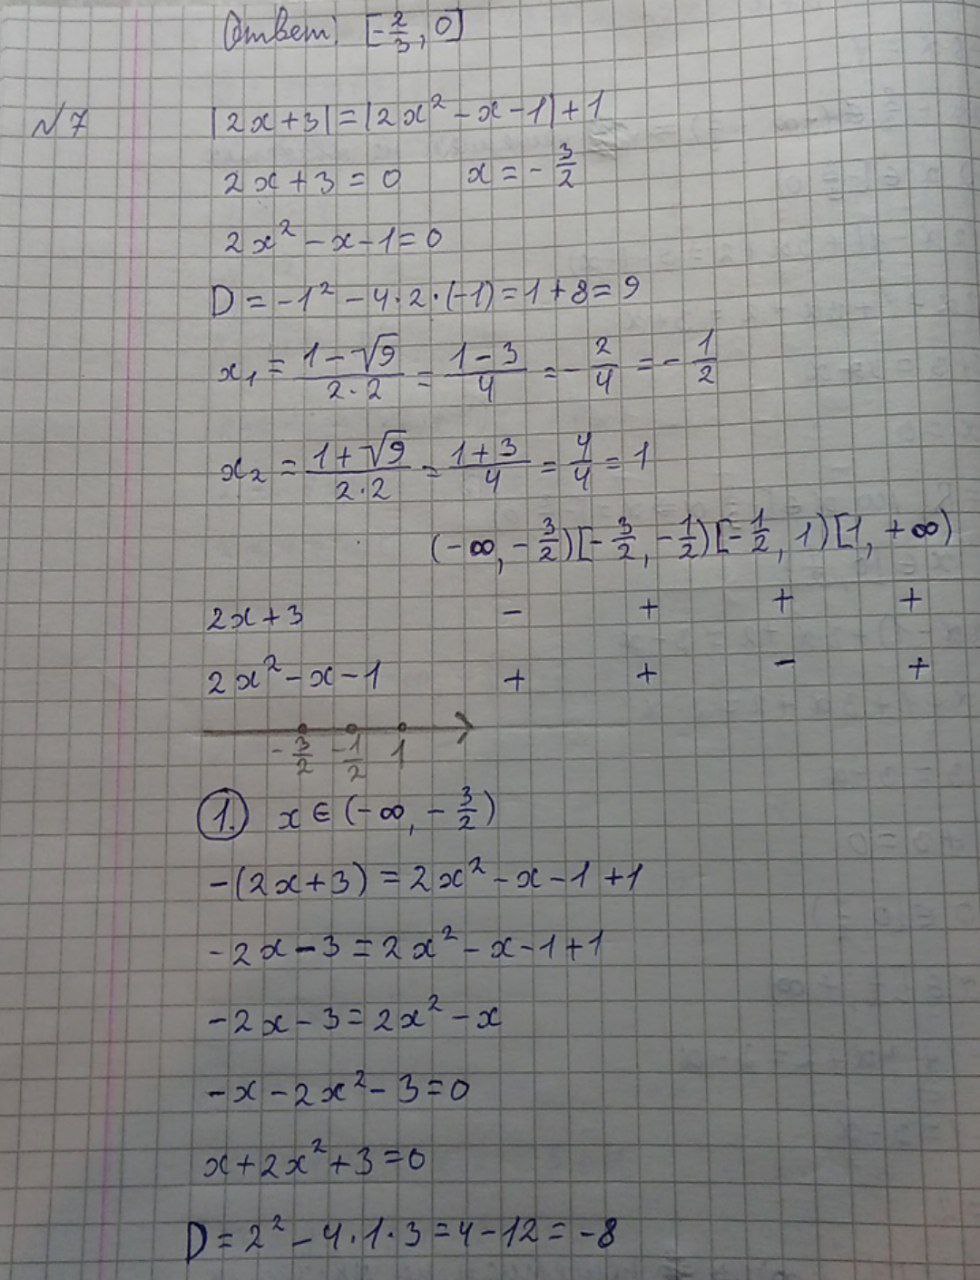 Ответ: [-2/3, 0]
№7 |2x+3|=|2x²-x-1|+1
2x+3=0 x=-3/2
2x²-x-1=0
D=-1²-4·2·(-1)=1+8=9
x₁=(1-√9)/(2·2)=(1-3)/4=-2/4=-1/2
x₂=(1+√9)/(2·2)=(1+3)/4=4/4=1
(-∞,-3/2)[-3/2,-1/2)[-1/2,1)[1,+∞)
2x+3 - + + +
2x²-x-1 + + - +
-3/2 -1/2 1
1. x∈(-∞,-3/2)
-(2x+3)=2x²-x-1+1
-2x-3=2x²-x-1+1
-2x-3=2x²-x
-x-2x²-3=0
x+2x²+3=0
D=2²-4·1·3=4-12=-8